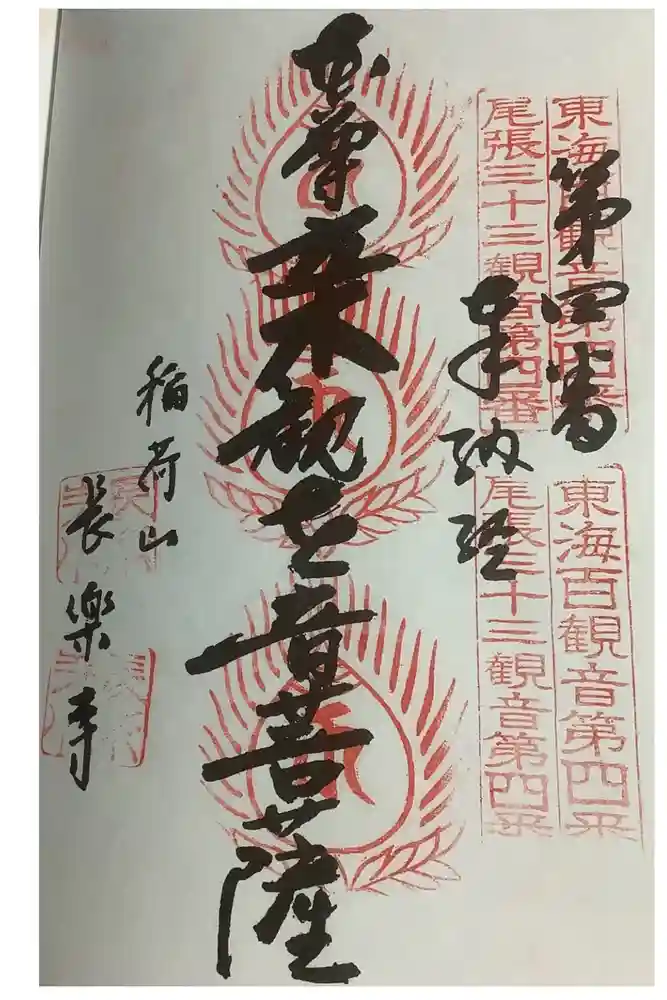 東海百観音第四番
尾張三十三観音第四番
東海百観音第四番
尾張三十三観音第四番
第四番
奉納経
本尊
来観世音菩薩
稲荷山
長楽寺